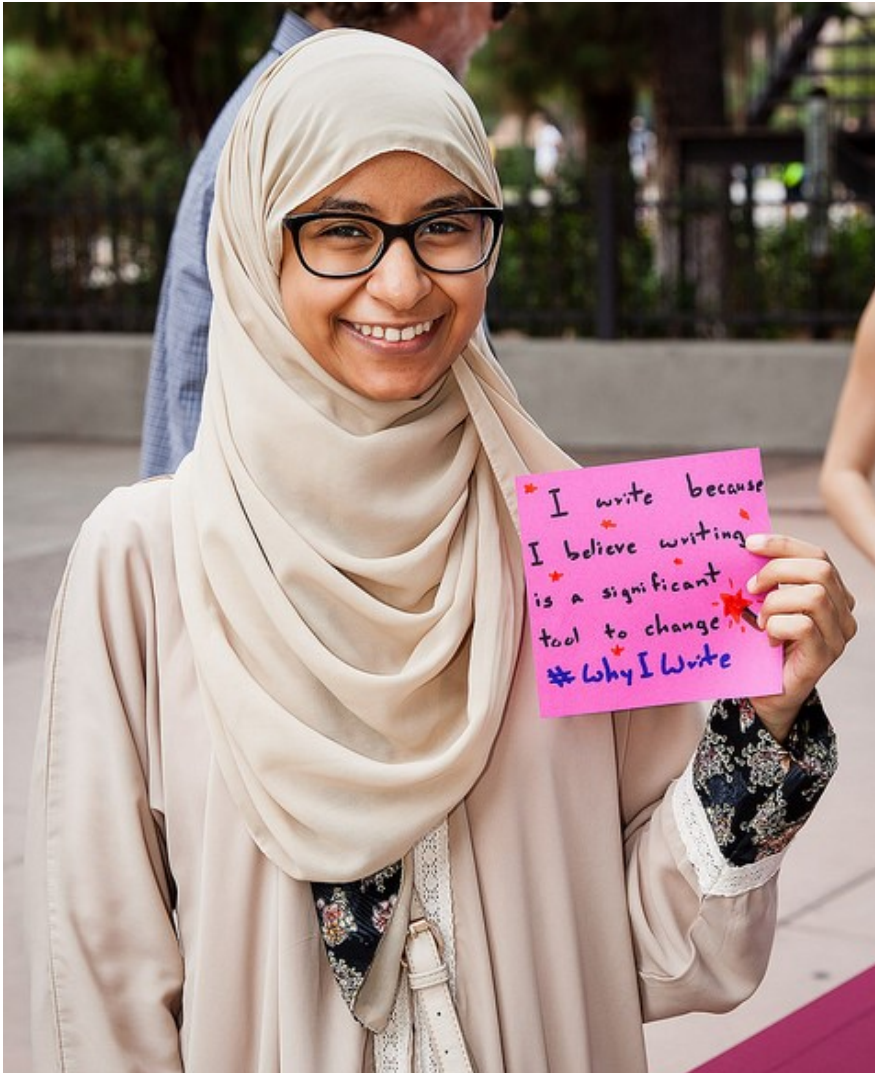 I write because
I believe writing
is a significant
tool to change
#WhyIWrite